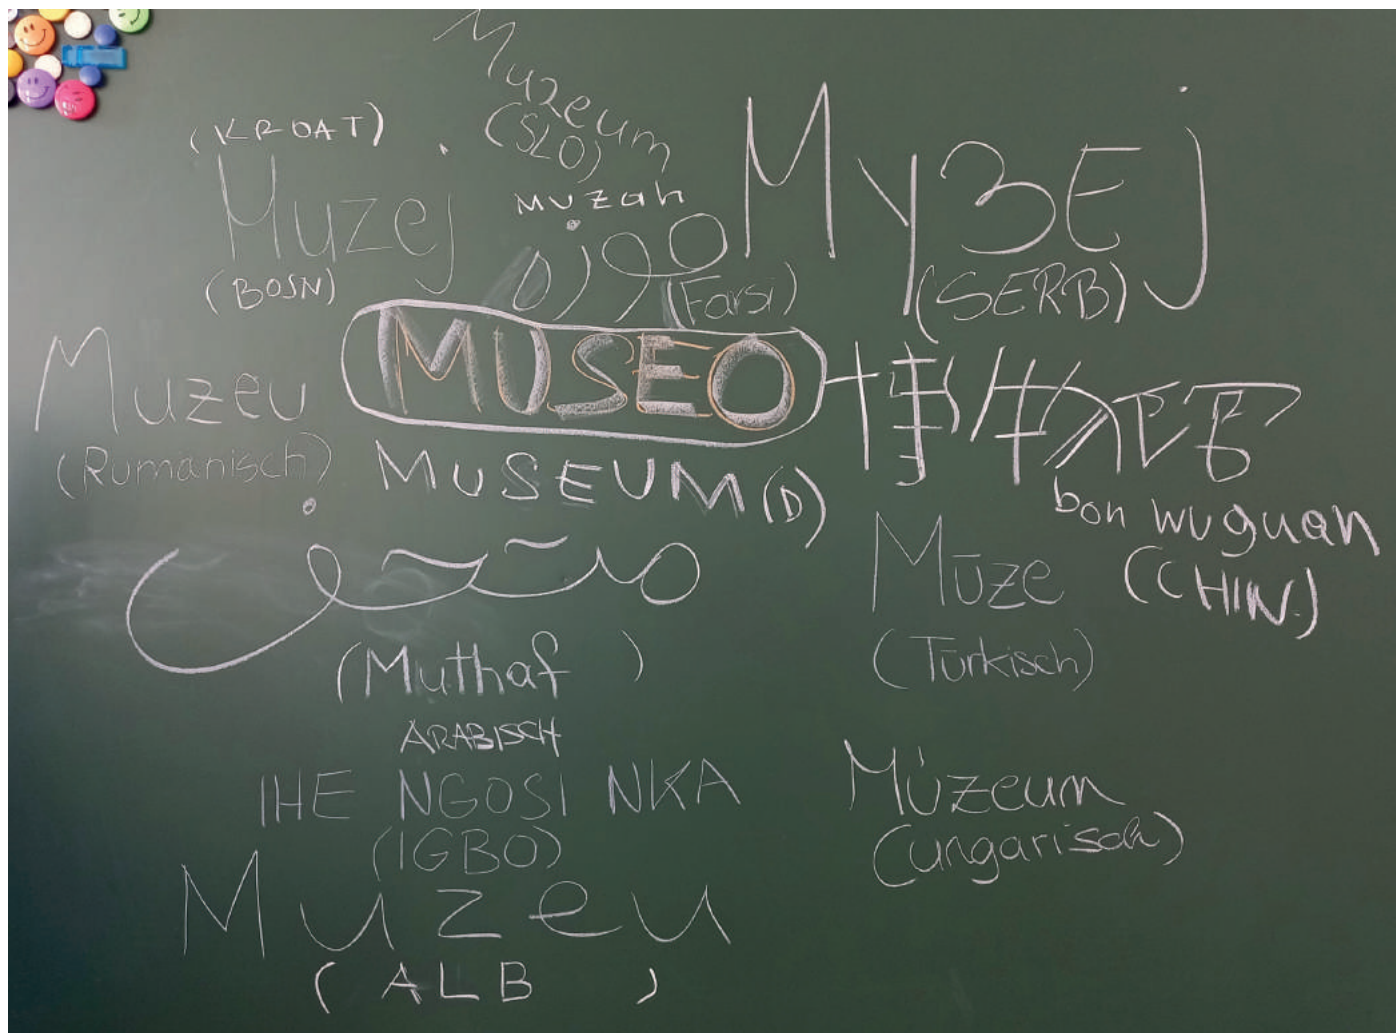 Muzeum
(SLO)
(KROAT)
Muzej
(BOSN)
muzah
موزه
(Farsi)
Музеј
(SERB)
MUSEO
Muzeu
(Rumanisch)
MUSEUM (D)
bon wuguan
(CHIN.)
متحف
(Muthaf )
ARABISCH
Müze
(Türkisch)
IHE NGOSI NKA
(IGBO)
Múzeum
(ungarisch)
Muzeu
(ALB )